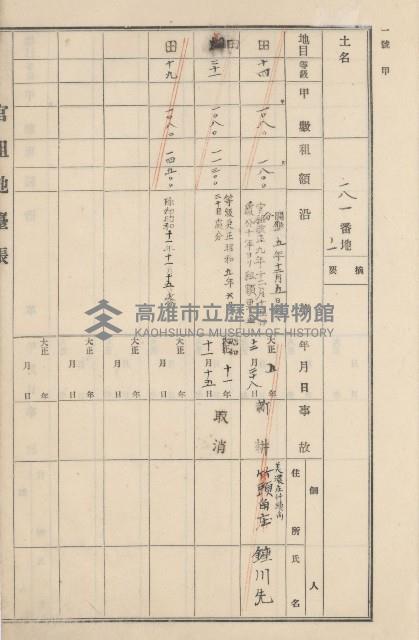 一號甲
土名
一八一番地ノ二
摘要
地目 等級 甲數 租額 沿 年月日 事故 個人 住所 氏名
田 十四 一〇八〇 一八〇〇
開墾 五年十二月
大正 五年 十二月二十八日 新耕
美濃庄竹頭角
竹頭角庄
鍾川先
田 二十一 一〇八〇 一一二〇〇
等級更正昭和五年六月
二十日處分
昭和 十一年 十一月十五日 取消
田 十九 一〇八〇 一四五〇〇
除却昭和十一年十一月十五日
大正 年 月 日
大正 年 月 日
大正 年 月 日
大正 年 月 日
官租地臺帳
高雄市立歷史博物館
KAOHSIUNG MUSEUM OF HISTORY